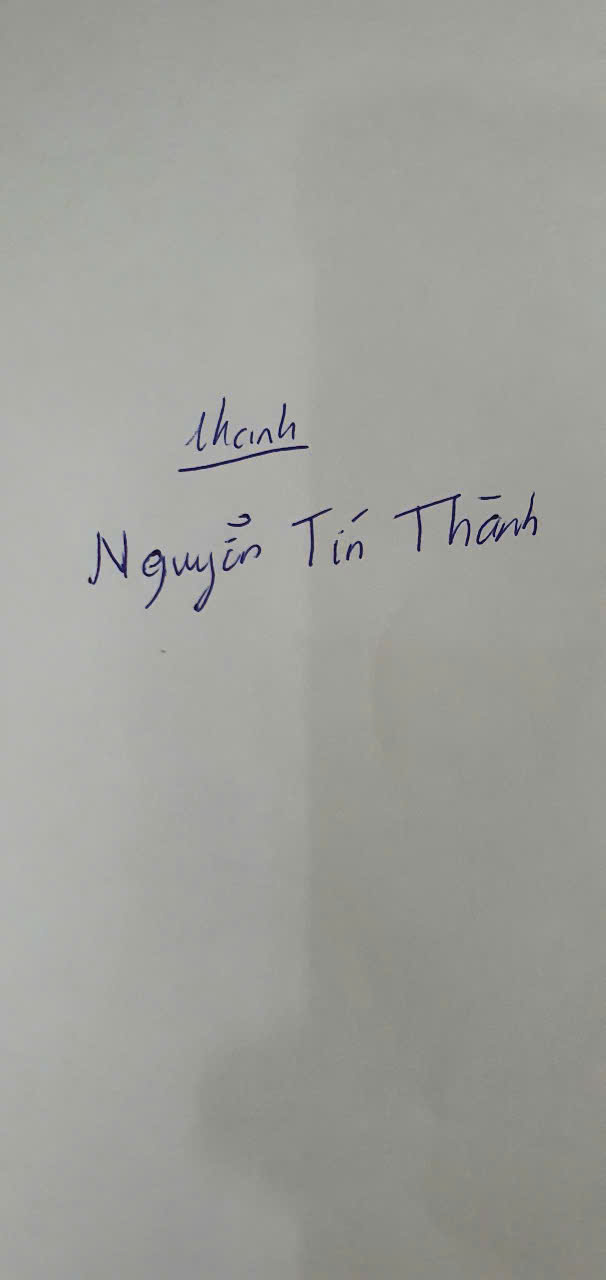 thanh
Nguyễn Tín Thành